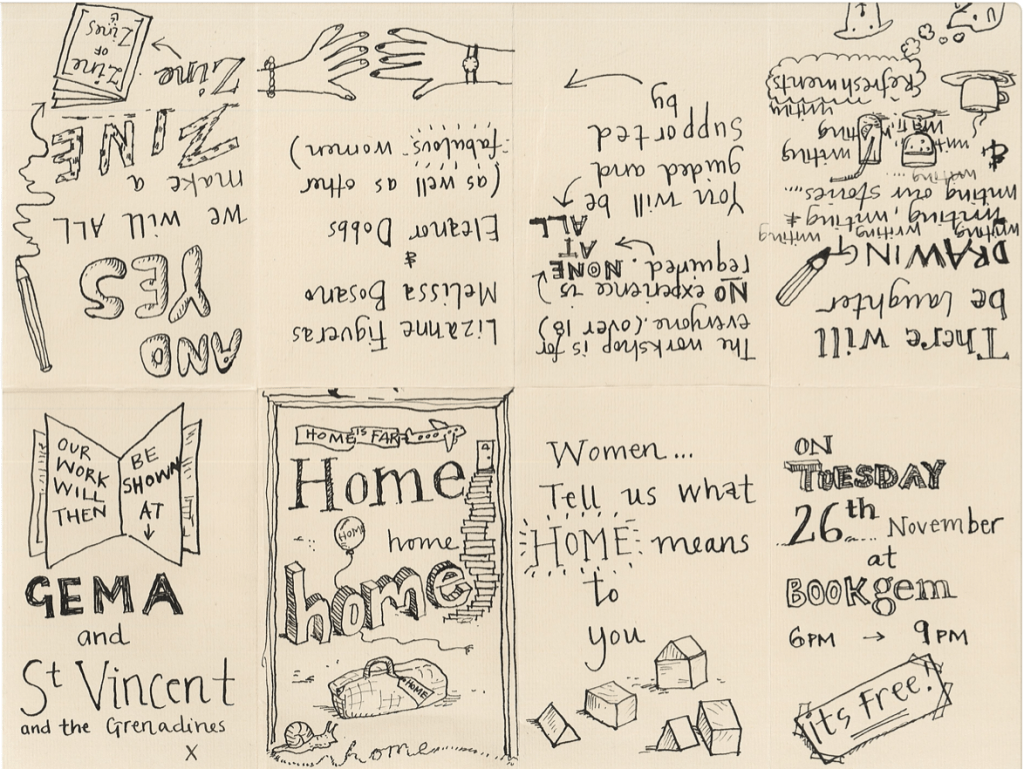 HOME IS FAR
Home
HOME
home
home
HOME!
home
Women...
Tell us what
HOME means
to
you
ON
TUESDAY
26th November
at
BOOKgem
6PM → 9PM
its free!
There will
be laughter
DRAWING
writing writing writing
writing, writing &
writing our stories...
writing...
&
writing
writing
writing
Refreshments
The workshop is for
everyone. (over 18)
NO experience is
required. NONE
AT
ALL
You will be
guided and
supported
by
Lizanne Figueras
Melissa Bosano
&
Eleanor Dobbs
(as well as other
fabulous women)
AND
YES
we will ALL
make a
ZINE
Zine
Zine
OF
Zines
OUR
WORK
WILL
THEN
BE
SHOWN
AT
GEMA
and
St Vincent
and the Grenadines
X